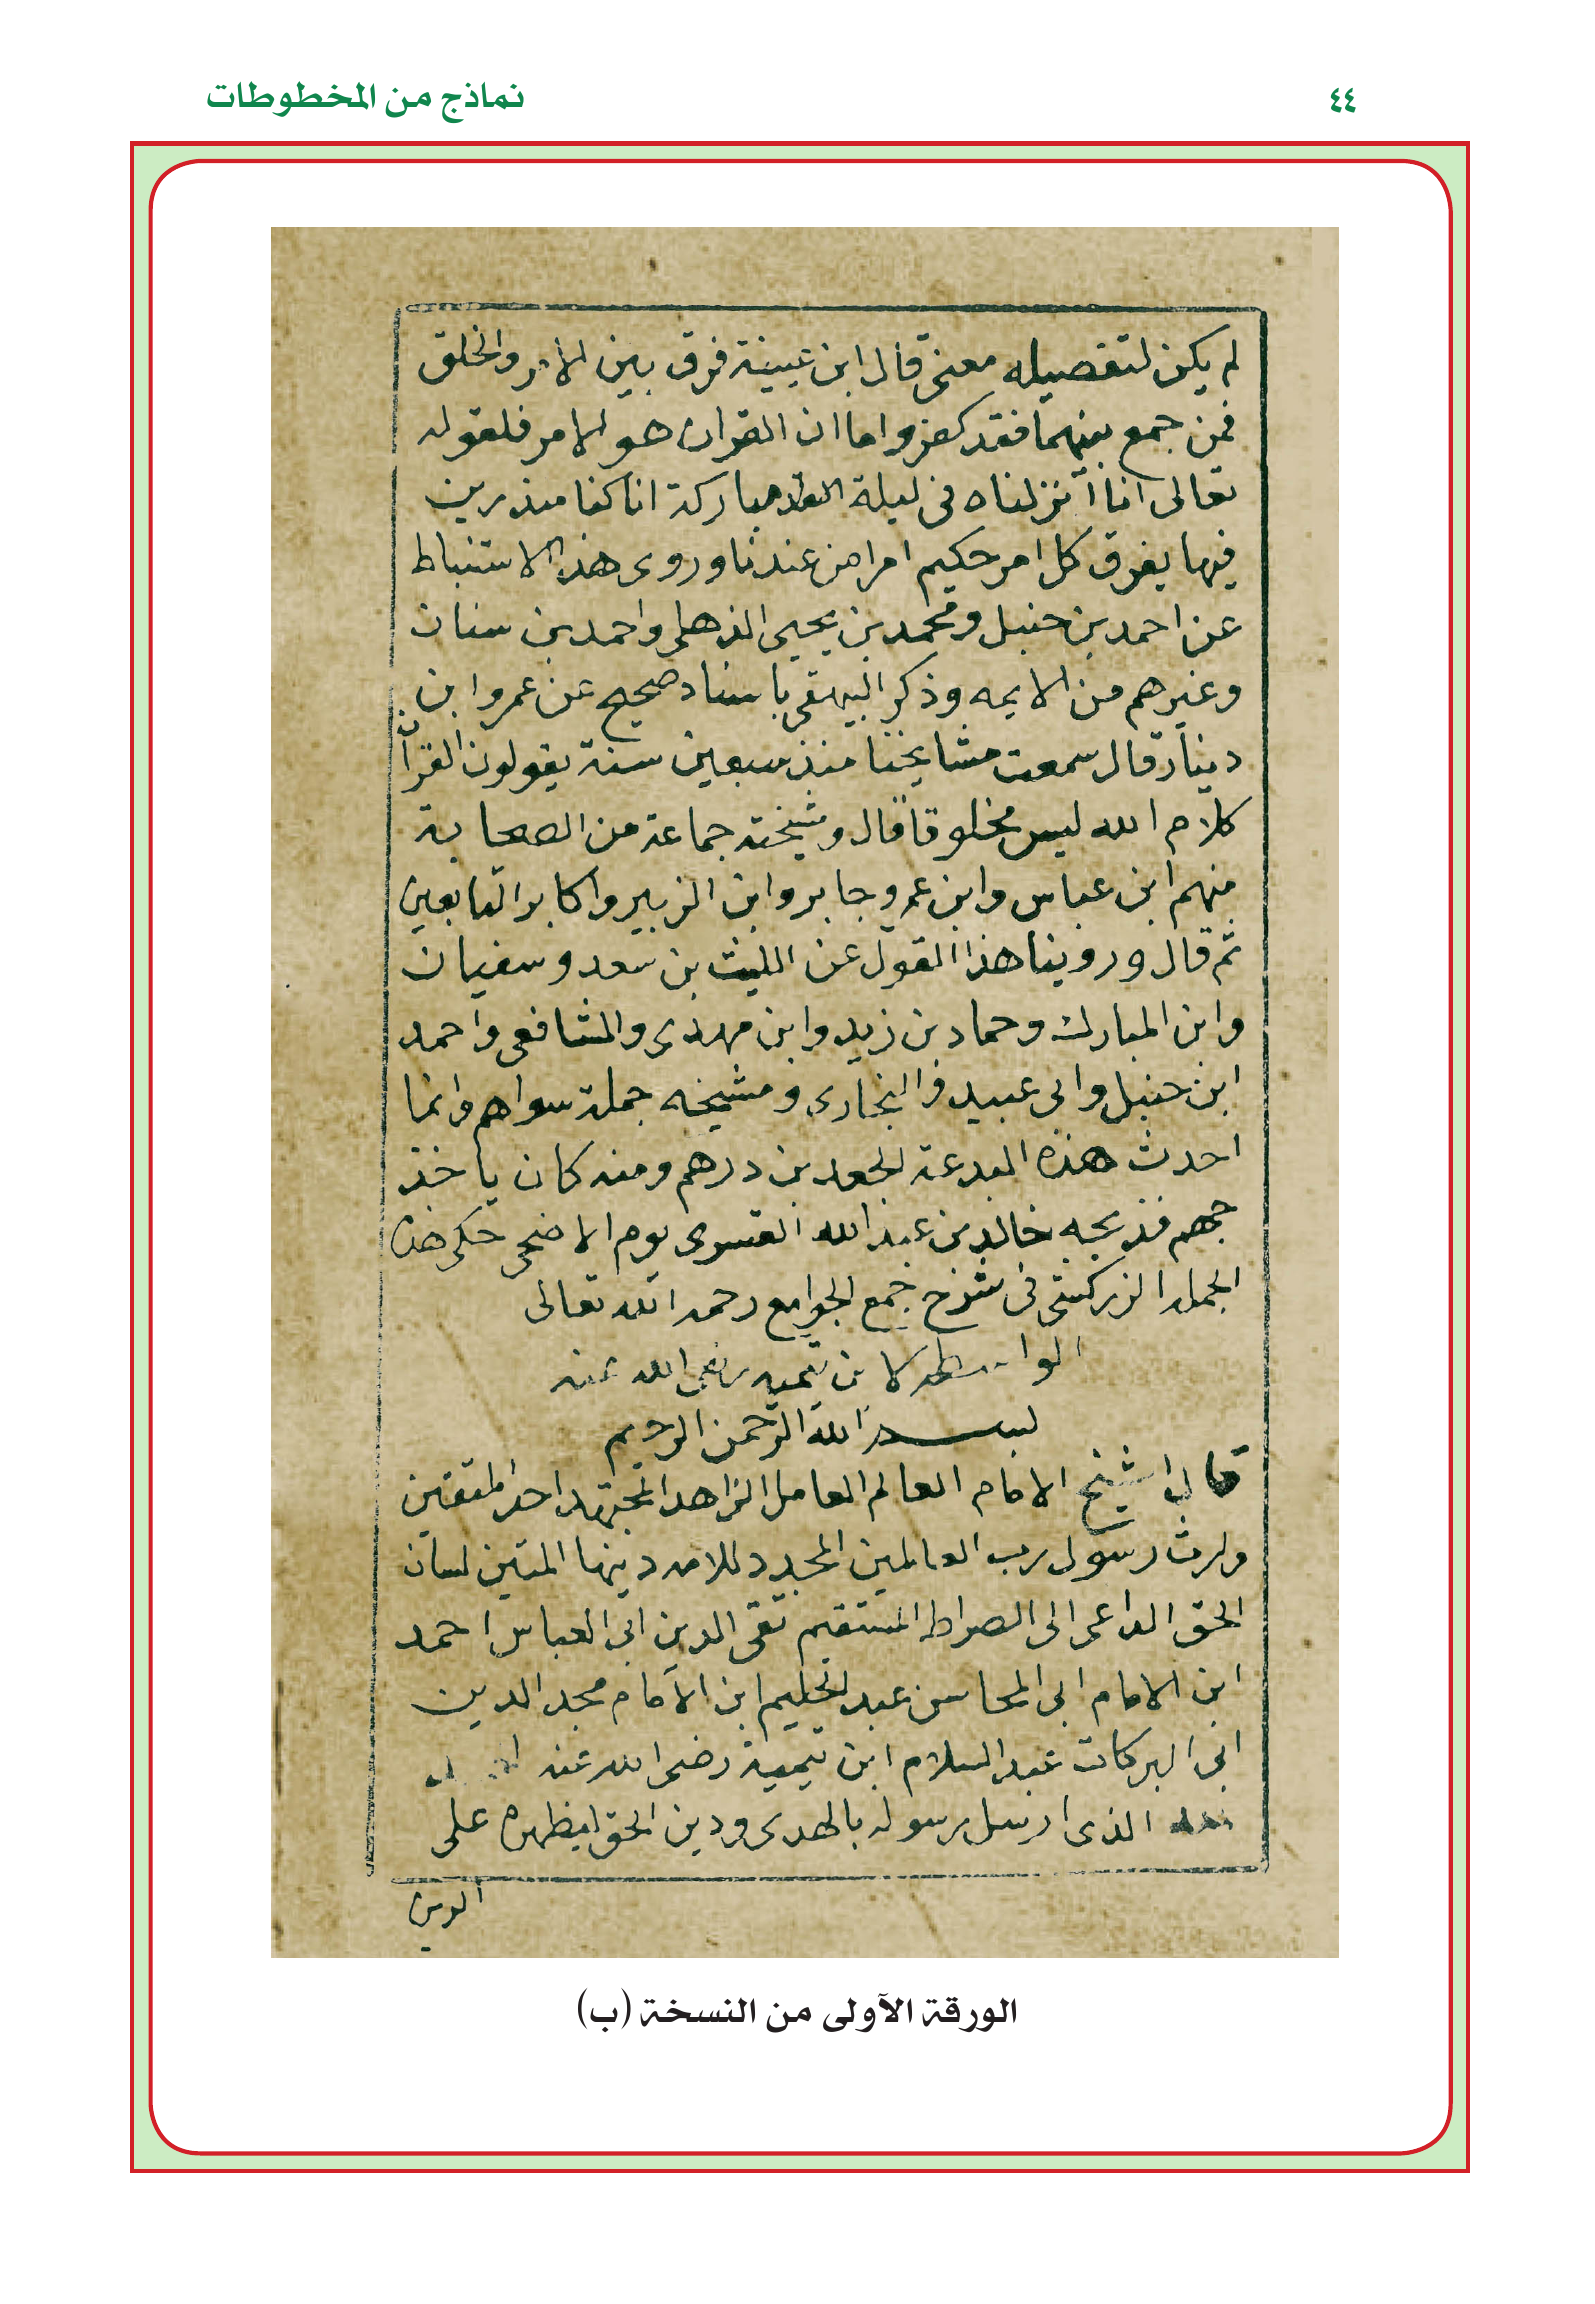 ٤٤
نماذج من المخطوطات
لم يكن لتفصيله معنى قال ابن عيينة فرق بين الامر والخلق
فمن جمع بينهما فقد كفر واما ان القران هو الامر فلقوله
تعالى انا انزلناه في ليلة مباركة انا كنا منذرين
فيها يفرق كل امر حكيم امرا من عندنا وروى هذا الاستنباط
عن احمد بن حنبل ومحمد بن يحيى الذهلى واحمد بن سنان
وغيرهم من الايمه وذكر البيهقى باسناد صحيح عن عمرو ابن
دينار قال سمعت مشايخنا منذ سبعين سنة يقولون القرآن
كلام الله ليس مخلوقا قال ومشيخته جماعة من الصحابة
منهم ابن عباس وابن عمر وجابر وابن الزبير واكابر التابعين
ثم قال وروينا هذا القول عن الليث بن سعد وسفيان
وابن المبارك وحماد بن زيد وابن مهدى والشافعى واحمد
ابن حنبل وابى عبيد والبخارى ومشيخه جملة سواهم وانما
احدث هذه البدعة الجعد بن درهم ومنه كان ياخذ
جهم فذبحه خالد بن عبد الله القسرى يوم الاضحى حكى هذه
الجمله الزركشى فى شرح جمع الجوامع رحمه الله تعالى
الواسطه لابن تيميه رضى الله عنه
بسم الله الرحمن الرحيم
قال الشيخ الامام العالم العامل الزاهد المجتهد احد المتقين
وارث رسول رب العالمين المجدد للامه دينها المتين لسان
الحق الداعى الى الصراط المستقيم تقى الدين ابى العباس احمد
ابن الامام ابى المحاسن عبد الحليم ابن الامام مجد الدين
ابى البركات عبد السلام ابن تيمية رضى الله عنه
لله الذى ارسل رسوله بالهدى ودين الحق ليظهره على
الدين
الورقة الأولى من النسخة (ب)